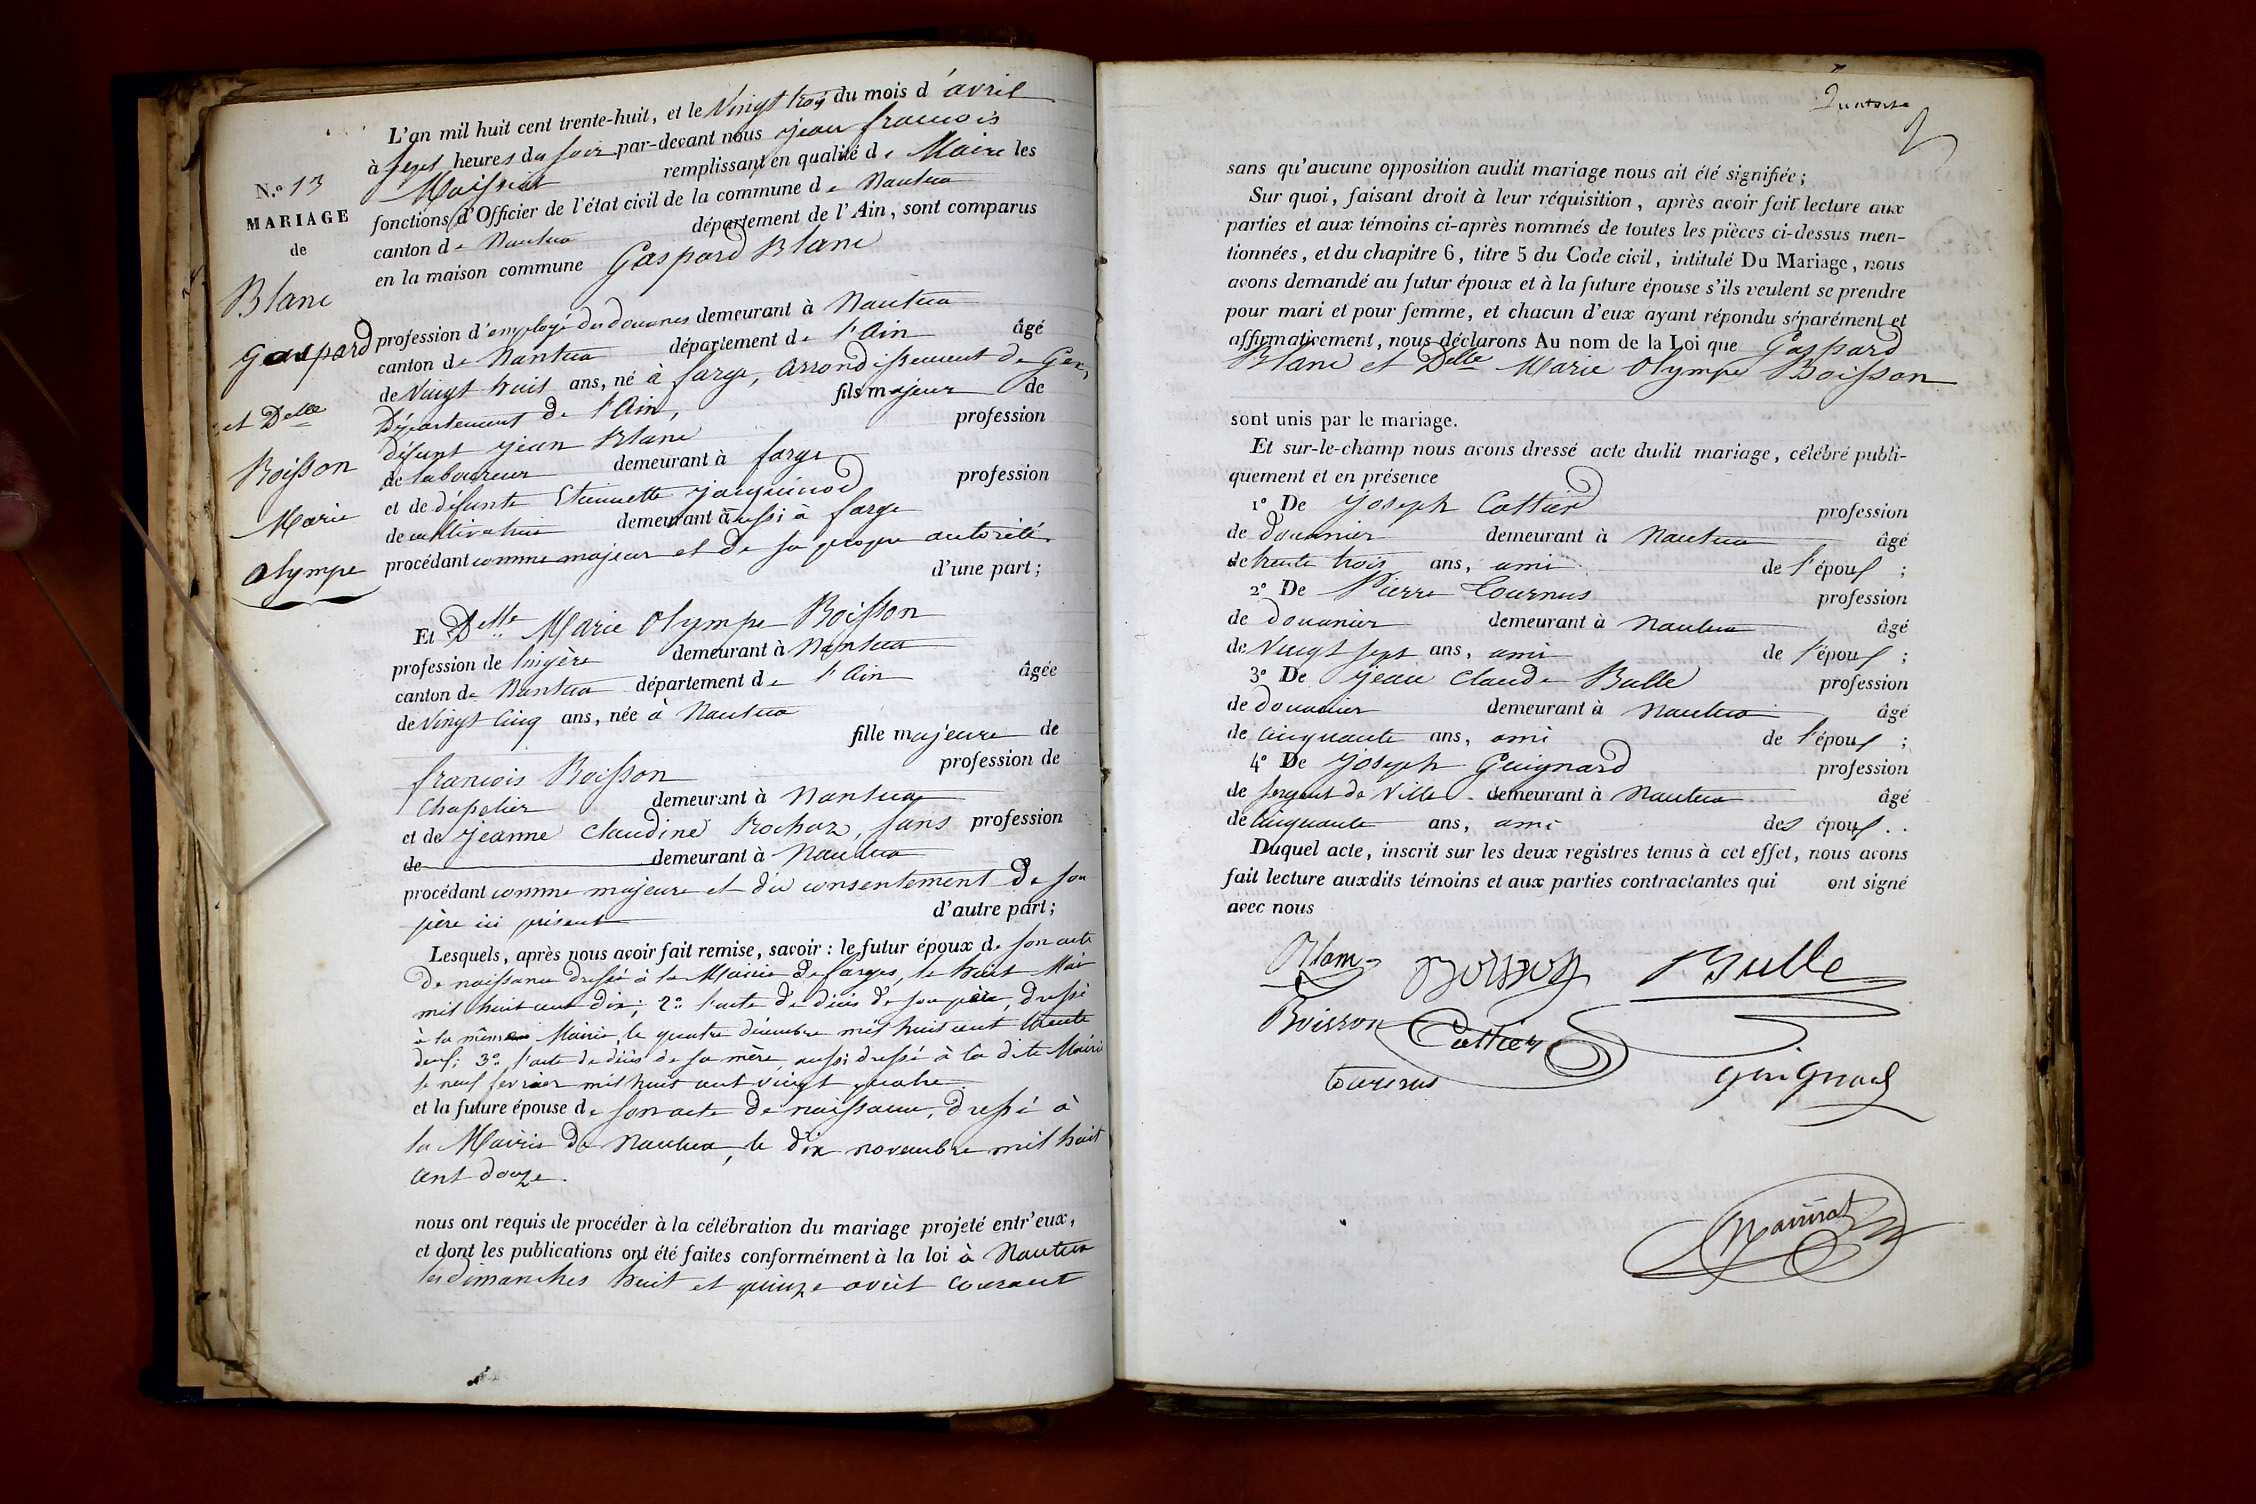 N.° 13
MARIAGE
de
Blanc
Gaspard
et Delle
Boisson
Marie
Olympe
L'an mil huit cent trente-huit, et le Vingt trois du mois d'avril
à sept heures du soir par-devant nous jean francois
remplissant en qualité de Maire les
fonctions d'Officier de l'état civil de la commune de Nantua
canton de Nantua département de l'Ain, sont comparus
en la maison commune Gaspard Blanc
profession d'employé des douanes demeurant à Nantua
canton de Nantua département de l'Ain âgé
de Vingt huit ans, né à farge, arrondissement de Gex,
Département de l'Ain, fils majeur de
défunt jean Blanc profession
de laboureur demeurant à farge
et de défunte Etiennette jacquinod profession
de cultivatrice demeurant aussi à farge
procédant comme majeur et de sa propre autorité
d'une part;
Et Delle Marie Olympe Boisson
profession de lingère demeurant à Nantua
canton de Nantua département de l'Ain âgée
de Vingt cinq ans, née à Nantua
fille majeure de
francois Boisson profession de
Chapelier demeurant à Nantua
et de jeanne claudine Rochaz, sans profession
de demeurant à Nantua
procédant comme majeure et du consentement de son
père ici présent d'autre part;
Lesquels, après nous avoir fait remise, savoir : le futur époux de son acte
de naissance dressé à la Mairie de farges, le huit Mai
mil huit cent dix; 2.° l'acte de décès de son père, dressé
à la même Mairie, le quatre décembre mil huit cent trente
deux; 3.° l'acte de décès de sa mère, aussi dressé à la dite Mairie
le neuf fevrier mil huit cent vingt quatre.
et la future épouse de son acte de naissance, dressé à
la Mairie de Nantua, le dix novembre mil huit
cent douze.
nous ont requis de procéder à la célébration du mariage projeté entr'eux,
et dont les publications ont été faites conformément à la loi à Nantua
les dimanches huit et quinze avril courant
quatorze
sans qu'aucune opposition audit mariage nous ait été signifiée;
Sur quoi, faisant droit à leur réquisition, après avoir fait lecture aux
parties et aux témoins ci-après nommés de toutes les pièces ci-dessus men-
tionnées, et du chapitre 6, titre 5 du Code civil, intitulé Du Mariage, nous
avons demandé au futur époux et à la future épouse s'ils veulent se prendre
pour mari et pour femme, et chacun d'eux ayant répondu séparément et
affirmativement, nous déclarons Au nom de la Loi que Gaspard
Blanc et Delle Marie Olympe Boisson
sont unis par le mariage.
Et sur-le-champ nous avons dressé acte dudit mariage, célébré publi-
quement et en présence
1° De Joseph Cottier profession
de douanier demeurant à Nantua âgé
de trente trois ans, ami de l'époux ;
2° De Pierre Tournus profession
de douanier demeurant à Nantua âgé
de Vingt sept ans, ami de l'époux ;
3° De jean claude Bulle profession
de douanier demeurant à Nantua âgé
de cinquante ans, ami de l'époux ;
4° De joseph Guignard profession
de sergent de Ville demeurant à Nantua âgé
de cinquante ans, ami des époux.
Duquel acte, inscrit sur les deux registres tenus à cet effet, nous avons
fait lecture auxdits témoins et aux parties contractantes qui ont signé
avec nous
Blanc Boisson Bulle
Boisson Cottier
tournus guignard